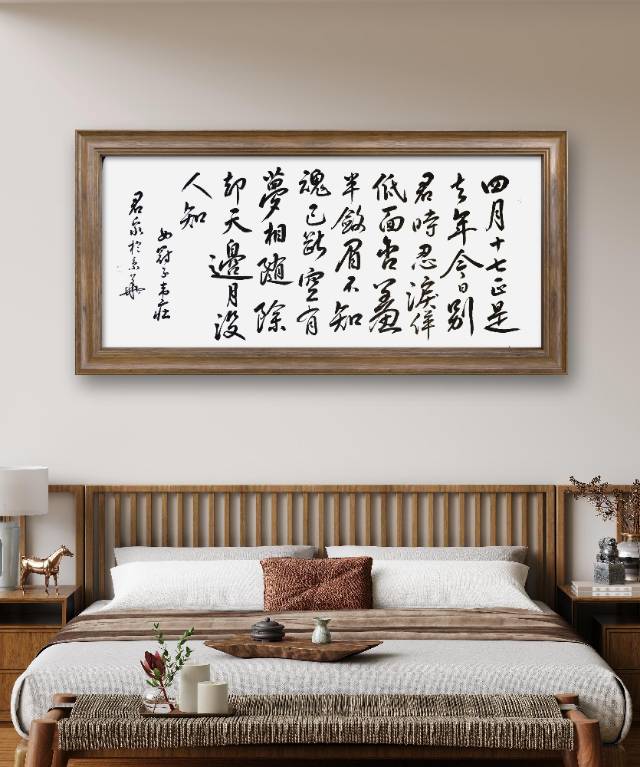 四月十七正是
去年今日別
君時忍淚佯
低面含羞
半斂眉不知
魂已斷空有
夢相随除
却天邊月沒
人知
女冠子韋莊
君泉於京華